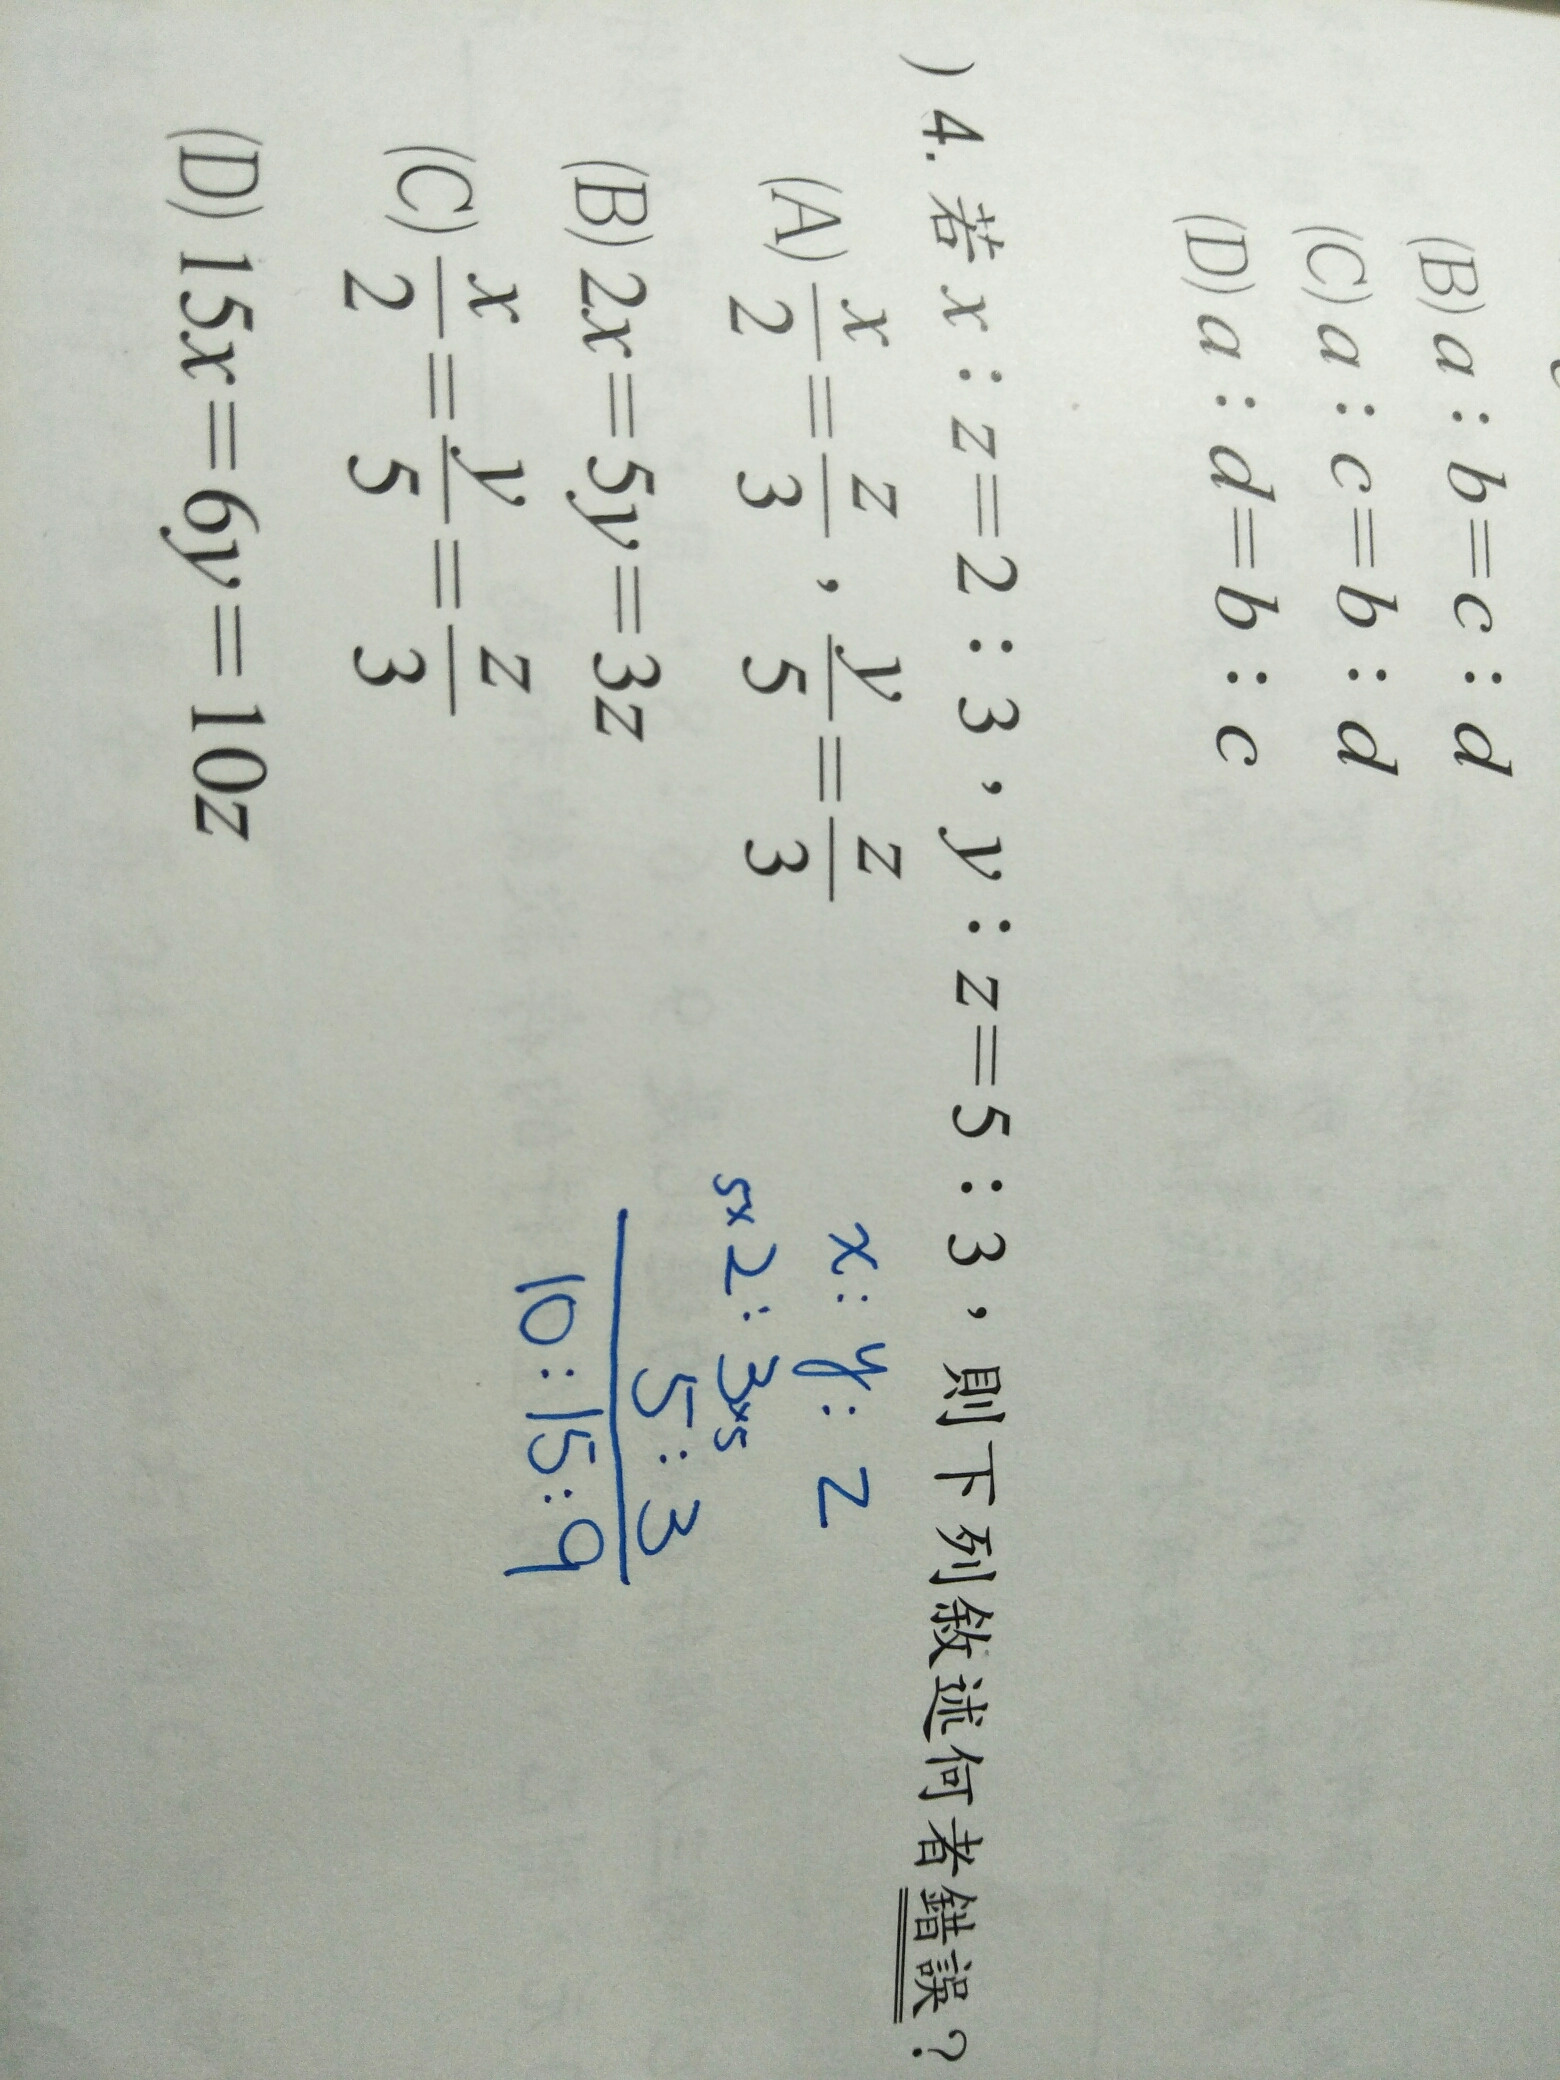 (B) a：b＝c：d
(C) a：c＝b：d
(D) a：d＝b：c
)4. 若 x：z＝2：3，y：z＝5：3，則下列敘述何者錯誤？
(A) x/2＝z/3，y/5＝z/3
(B) 2x＝5y＝3z
(C) x/2＝y/5＝z/3
(D) 15x＝6y＝10z
x：y：z
5×2：3×5
5：3
10：15：9